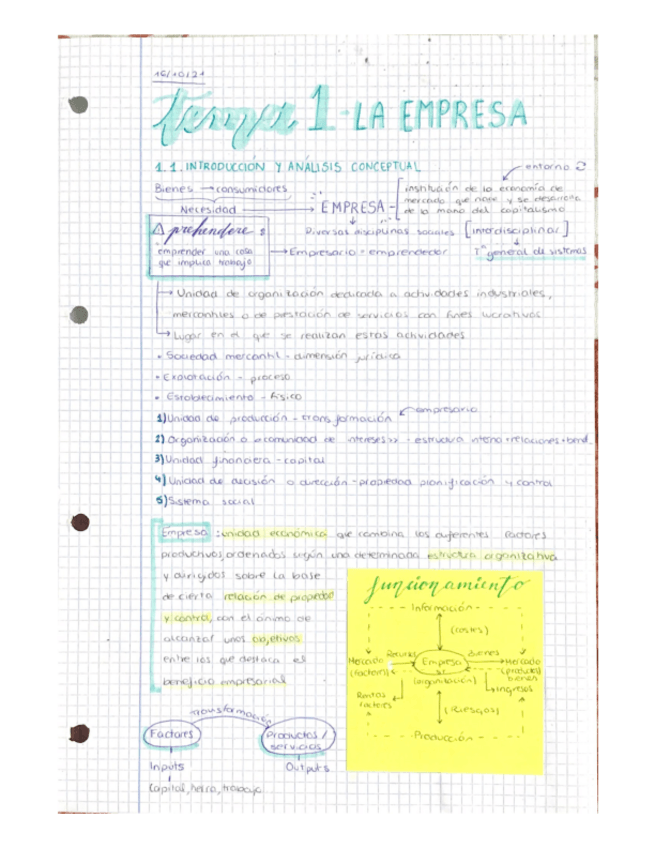 16/10/21
tema 1 - LA EMPRESA
1.1. INTRODUCCIÓN Y ANÁLISIS CONCEPTUAL
entorno
Bienes → consumidores
institución de la economía de
mercado que nace y se desarrolla
de la mano del capitalismo
Necesidad → EMPRESA -
prehendere :
emprender una cosa
que implica trabajo
Diversas disciplinas sociales [interdisciplinar]
→ Empresario = emprendedor
Tª general de sistemas
→ Unidad de organización dedicada a actividades industriales,
mercantiles o de prestación de servicios con fines lucrativos
→ Lugar en el que se realizan estas actividades
• Sociedad mercantil - dimensión jurídica
• Explotación - proceso
• Establecimiento - físico
1) Unidad de producción - transformación
empresario
2) Organización o «comunidad de intereses» - estructura interna + relaciones +
3) Unidad financiera - capital
4) Unidad de decisión o dirección - propiedad planificación y control
5) Sistema social
Empresa : unidad económica que combina los diferentes factores
productivos, ordenados según una determinada estructura organizativa
y dirigidos sobre la base
de cierta relación de propiedad
y control, con el ánimo de
alcanzar unos objetivos
entre los que destaca el
beneficio empresarial
funcionamiento
Información
(costes)
Recursos
Bienes
Mercado
(factores)
Empresa
(organización)
Mercado
(productos)
bienes
Rentas
factores
Ingresos
(Riesgos)
Producción
transformación
Factores
Productos /
servicios
Inputs
Outputs
Capital, tierra, trabajo